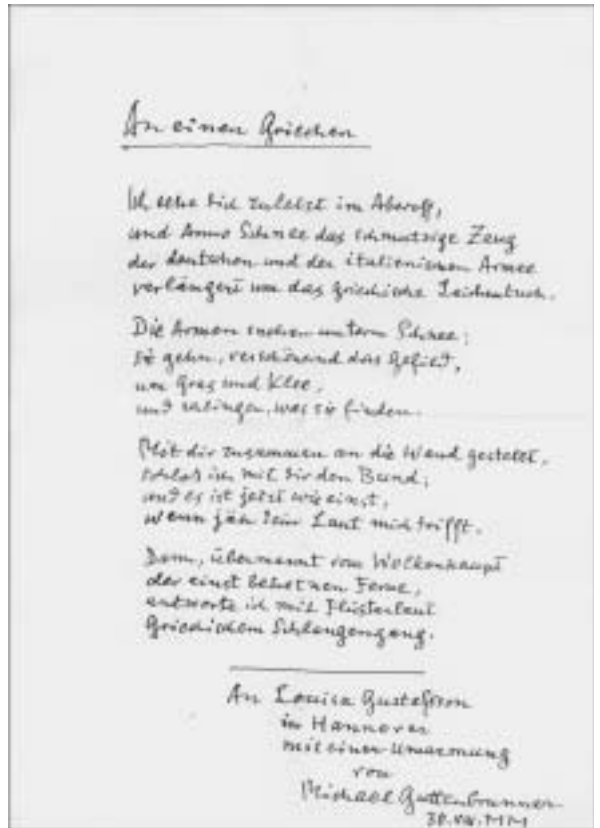 An einen Griechen
Ich sehe dich zuletzt im Averoff,
und Schnee das schmutzige Zeug
der deutschen und der italienischen Armee
verlängert um das griechische Leichentuch.
Die Armen suchen unterm Schnee;
sie gehn, das Gefild,
um Gras und Klee,
und was sie finden.
Mit dir zusammen an die Wand gestellt,
schloß ich mit dir den Bund;
und es ist jetzt wie einst,
wenn jäh dein Laut mich trifft.
Dann, übermannt vom Wolkenhaupt
der einst Ferne,
antworte ich mit Flüsterlaut
Griechischem Schlangengang.
An Louisa Gustafsson
in Hannover
mit einer Umarmung
von
Michael Guttenbrunner
30.VIII.MM